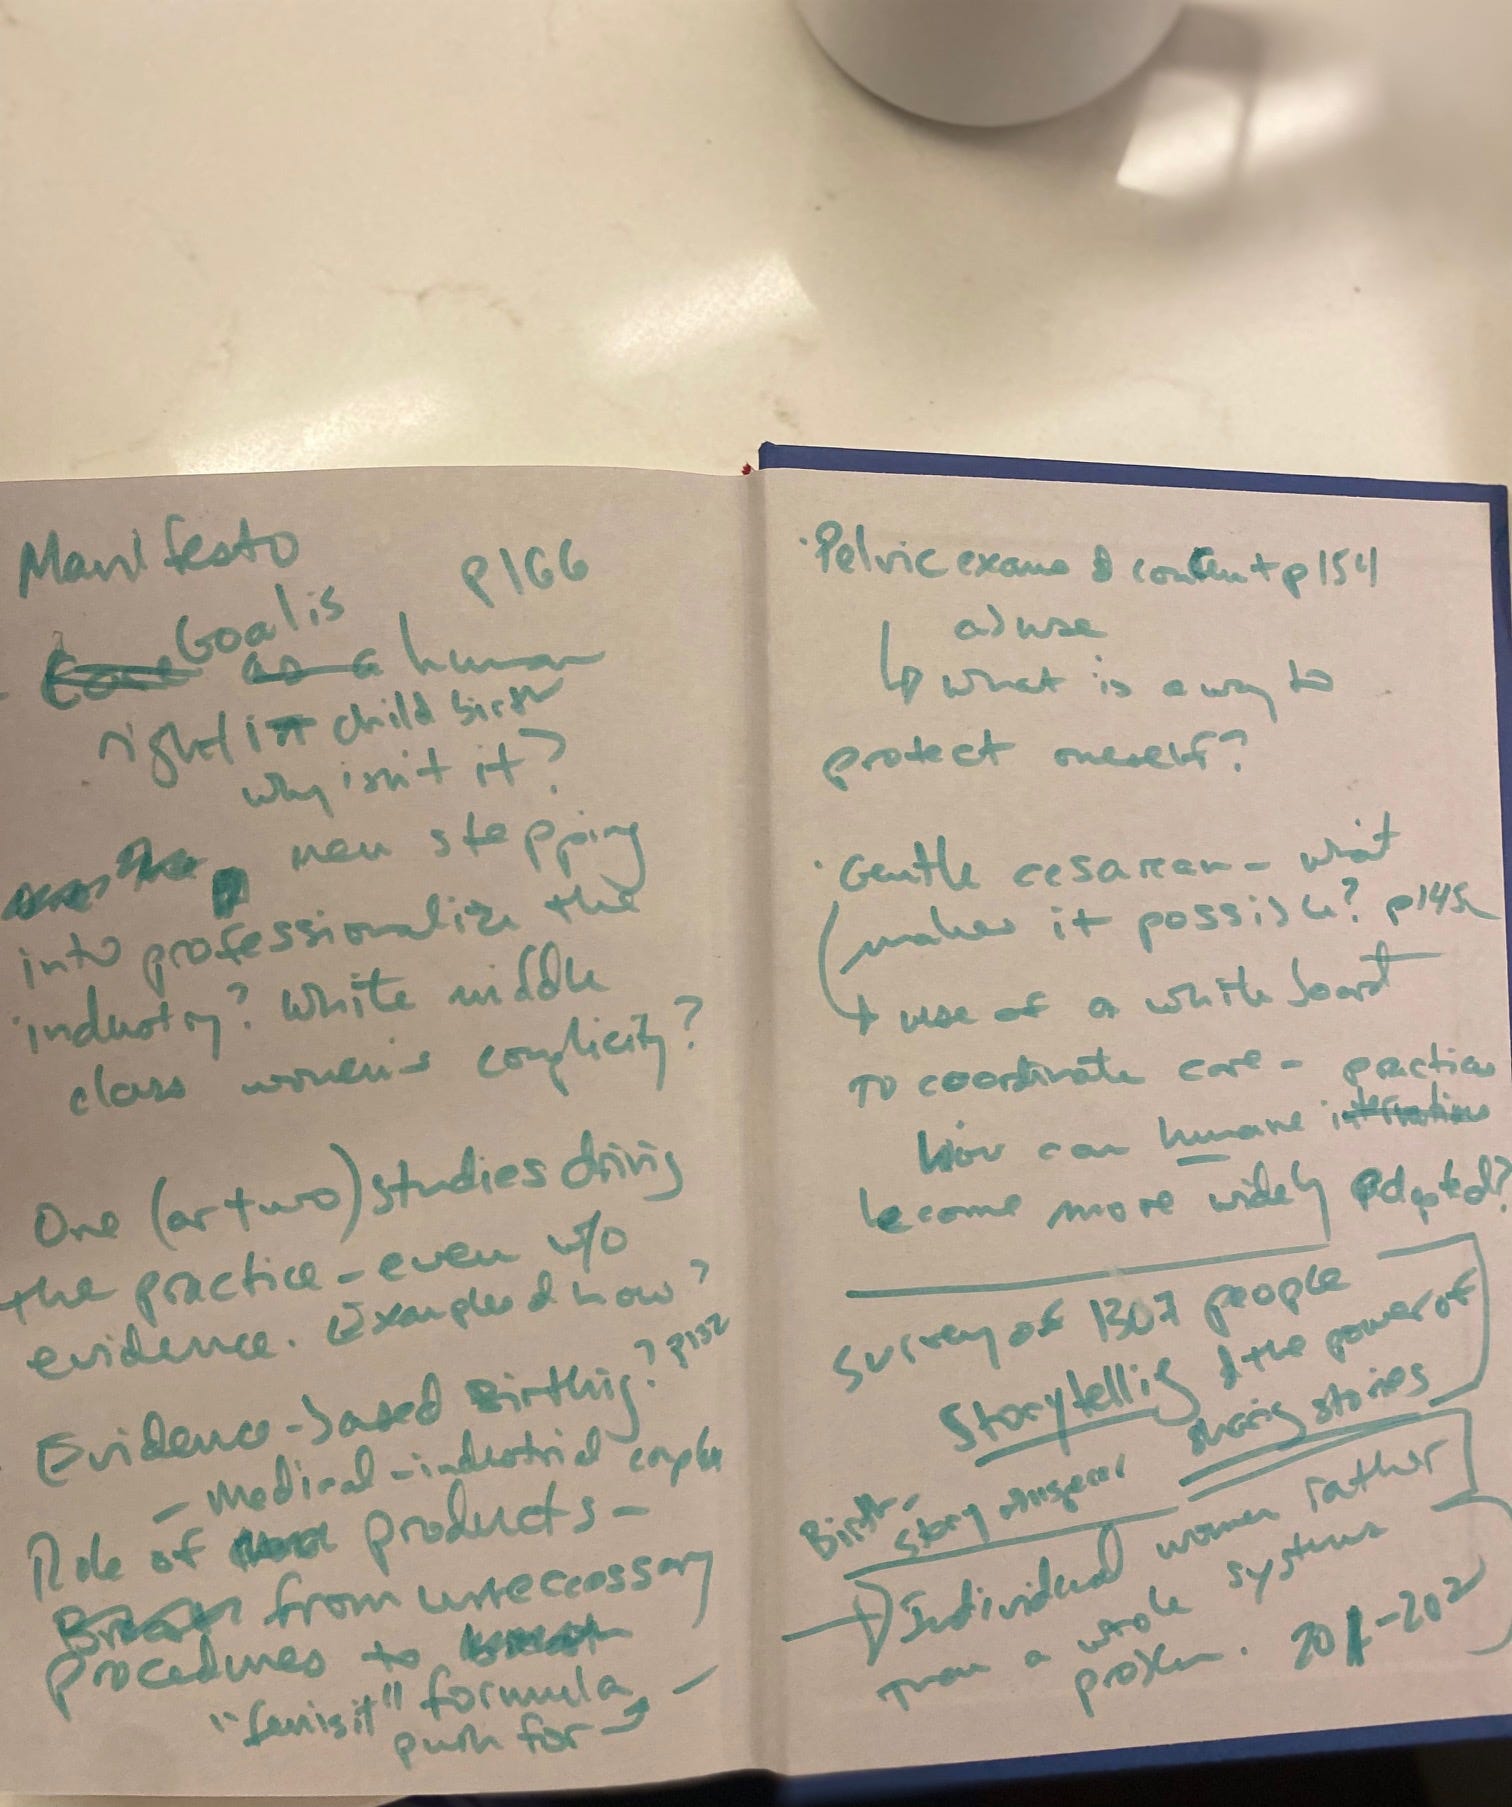 Manifesto
p166
Goal is
as a human
right in child birth
why isn't it?
men stepping
into professionalize the
industry? White middle
class women's complicity?
One (or two) studies driving
the practice - even w/o
evidence. Examples & how?
Evidence-based Birthing? p132
- Medical-industrial complex
Role of products -
from unnecessary
procedures to
"feminist" formula -
push for
· Pelvic exams & consent p154
abuse
↳ what is a way to
protect oneself?
· Gentle cesarean - what
makes it possible? p145
+ use of a white board
to coordinate care - practices
How can humane interventions
become more widely adopted?
Survey of 1307 people
Storytelling & the power of
sharing stories
Birth-
story
→ Individual women rather
than a whole systems
problem. 201-202